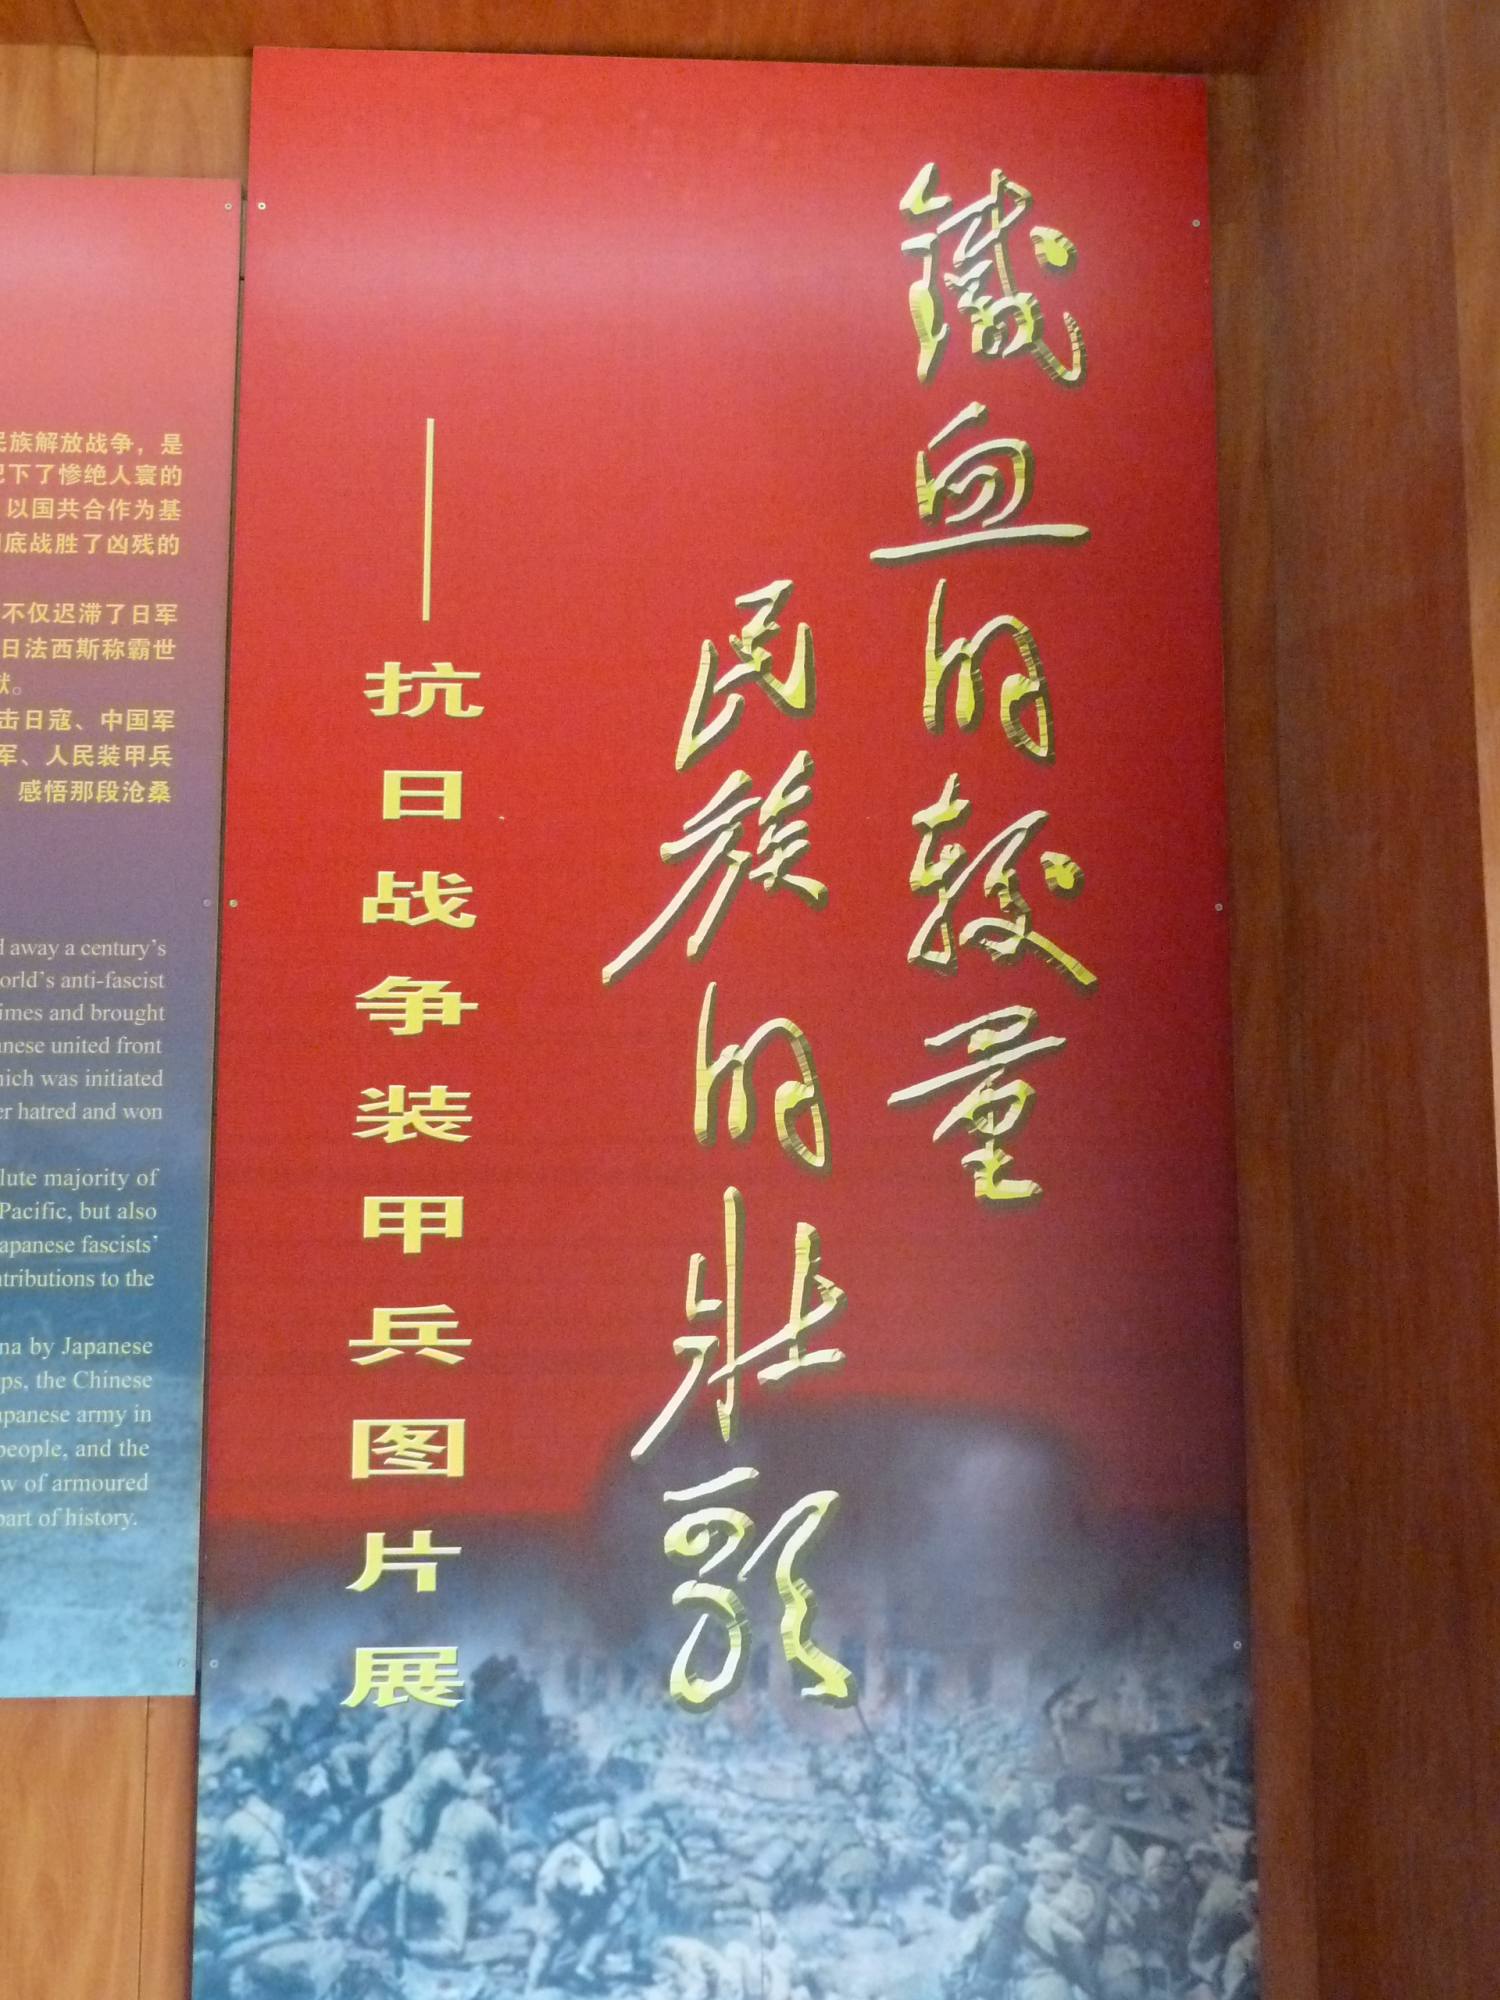 鐵血的较量
民族的壮歌
——抗日战争装甲兵图片展
民族解放战争，是
记下了惨绝人寰的
以国共合作为基
底战胜了凶残的
不仅迟滞了日军
日法西斯称霸世
献。
击日寇、中国军
军、人民装甲兵
感悟那段沧桑
away a century's
world's anti-fascist
times and brought
united front
which was initiated
hatred and won
majority of
Pacific, but also
Japanese fascists'
contributions to the
by Japanese
the Chinese
Japanese army in
people, and the
of armoured
part of history.